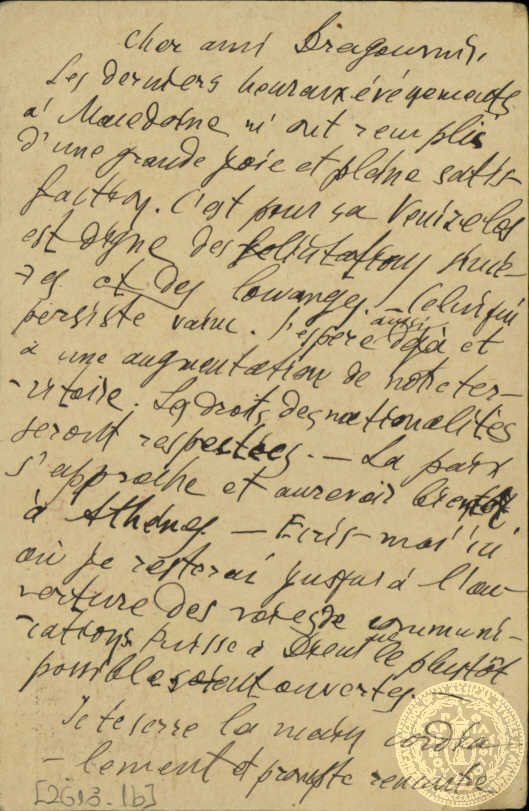 Cher ami Dragoumis,
Les derniers heureux événements
à Macédoine m'ont remplis
d'une grande joie et pleine satis-
faction. C'est pour ça Venizelos
est digne des felicitations sincè-
res et des louanges. Celui qui
persiste vainc. J'espère aussi déjà et
à une augmentation de notre ter-
ritoire. Les droits des nationalités
seront respectées. — La paix
s'approche et au revoir bientôt
à Athènes. — Ecris-moi ici
où je resterai jusqu'à l'ou-
verture des voies de communi-
cations. Puisse à Dieu que le plutôt
possible soient ouvertes. —
Je te serre la main cordia-
-lement et prompte rencontre
[2613-1b]